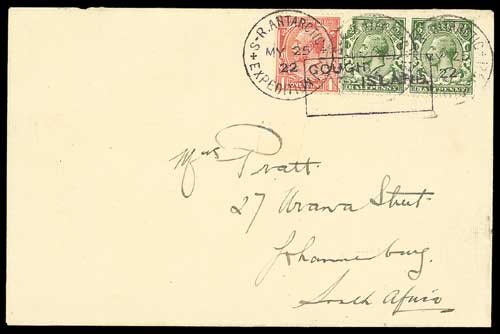 S-R. ANTARCTIC EXPEDITION
MY 25
22
GOUGH
ISLAND.
Mrs Pratt.
27 Urawa Street.
Johannesburg.
South Africa